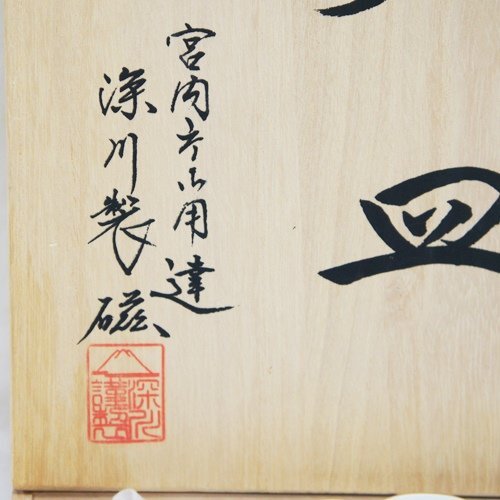 皿
宮内庁御用達
深川製磁
深川謹製